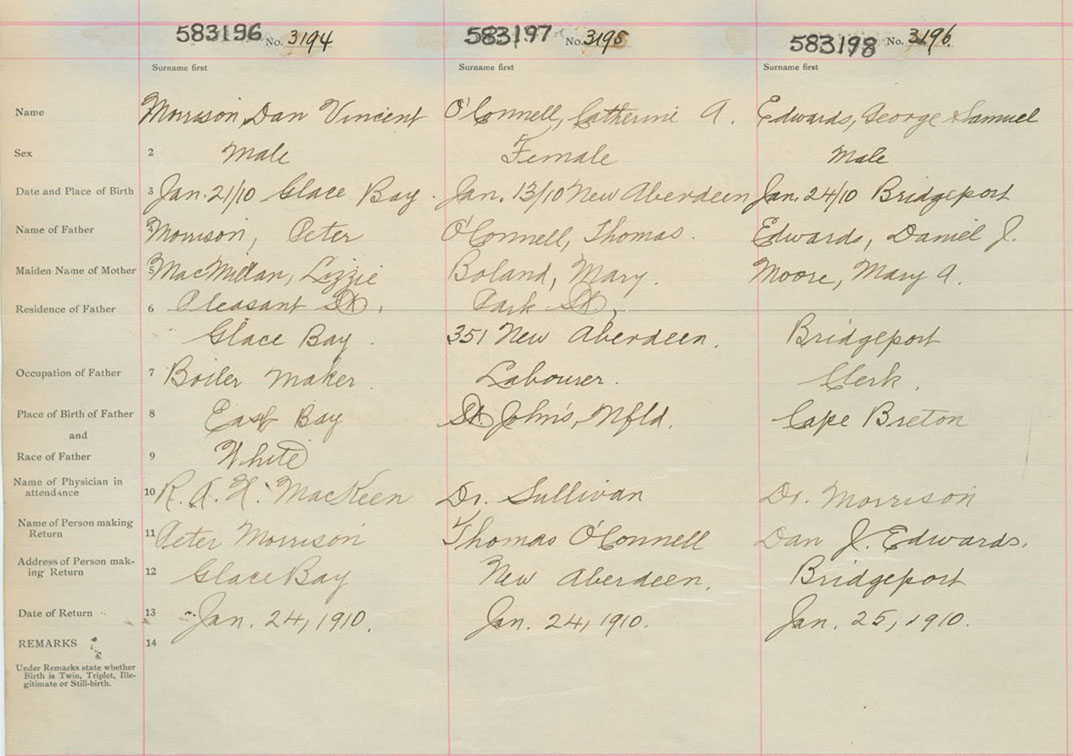 583196 No. 3194 583197 No. 3195 583198 No. 3196
Surname first Surname first Surname first
Name Morrison, Dan Vincent O'Connell, Catherine A. Edwards, George Samuel
Sex 2 Male Female Male
Date and Place of Birth 3 Jan. 21/10 Glace Bay. Jan. 13/10 New Aberdeen Jan. 24/10 Bridgeport
Name of Father 4 Morrison, Peter O'Connell, Thomas. Edwards, Daniel J.
Maiden Name of Mother 5 MacMillan, Lizzie Boland, Mary. Moore, Mary A.
Residence of Father 6 Pleasant St, Park St,
Glace Bay. 351 New Aberdeen. Bridgeport
Occupation of Father 7 Boiler Maker. Labourer. Clerk.
Place of Birth of Father 8 East Bay St John's, Nfld. Cape Breton
and
Race of Father 9 White
Name of Physician in
attendance 10 R. A. H. MacKeen Dr. Sullivan Dr. Morrison
Name of Person making
Return 11 Peter Morrison Thomas O'Connell Dan J. Edwards.
Address of Person mak-
ing Return 12 Glace Bay New Aberdeen. Bridgeport
Date of Return 13 Jan. 24, 1910. Jan. 24, 1910. Jan. 25, 1910.
REMARKS 14
Under Remarks state whether
Birth is Twin, Triplet, Ille-
gitimate or Still-birth.